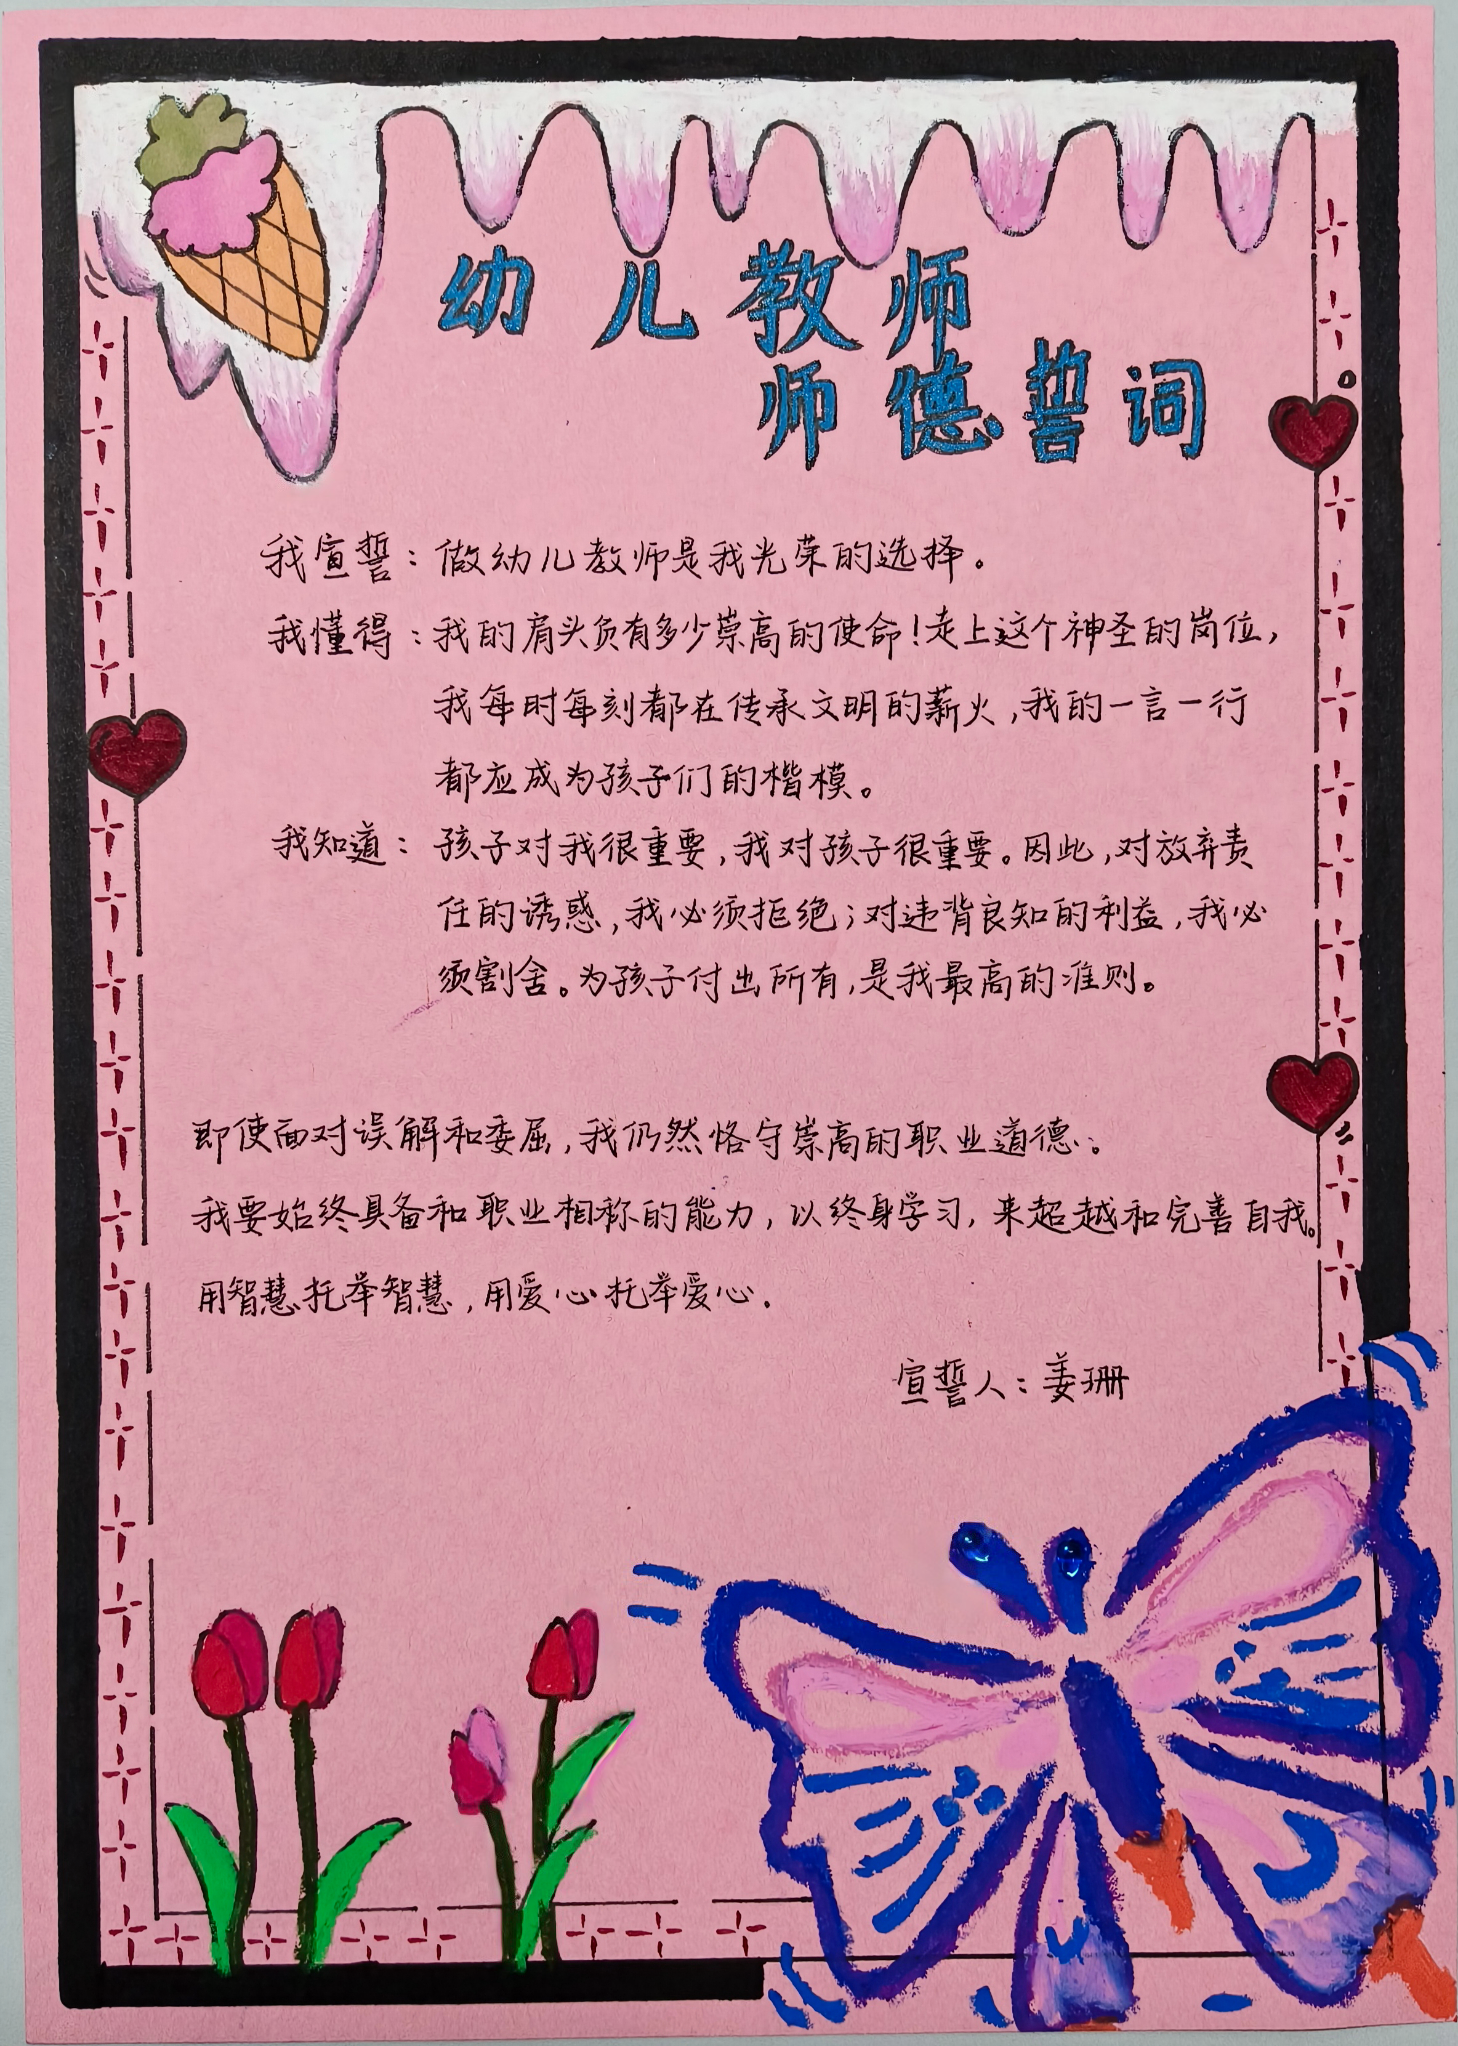 幼儿教师
师德誓词
我宣誓：做幼儿教师是我光荣的选择。
我懂得：我的肩头负有多少崇高的使命！走上这个神圣的岗位，
我每时每刻都在传承文明的薪火，我的一言一行
都应成为孩子们的楷模。
我知道：孩子对我很重要，我对孩子很重要。因此，对放弃责
任的诱惑，我必须拒绝；对违背良知的利益，我必
须割舍。为孩子付出所有，是我最高的准则。
即使面对误解和委屈，我仍然恪守崇高的职业道德。
我要始终具备和职业相称的能力，以终身学习，来超越和完善自我。
用智慧托举智慧，用爱心托举爱心．
宣誓人：姜珊